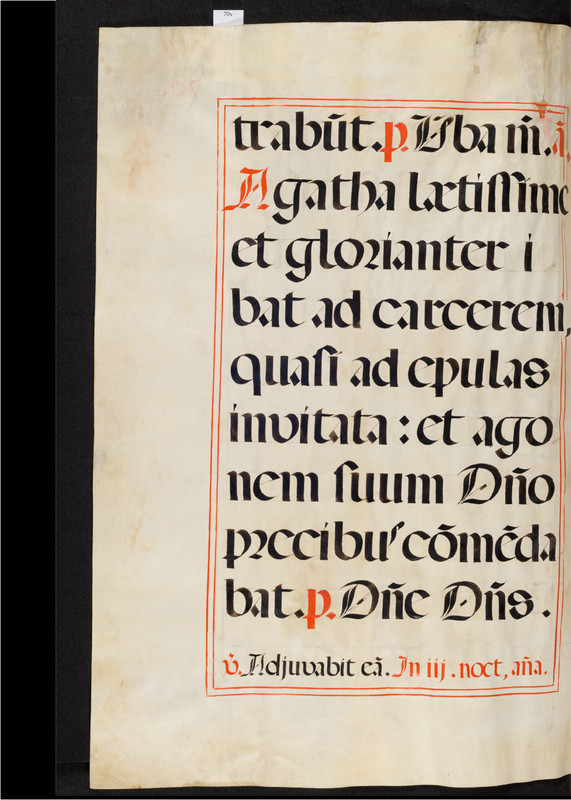 70v
trabūt. p. Vba m̄. ā.
Agatha lætiſſime
et gloꝛianter i
bat ad carcerem,
quaſi ad epulas
invitata : et ago
nem ſuum Dño
pꝛecibuſ cōmēda
bat. p. Dñe Dñs.
v̄. Adjuvabit eā. In iij. noct, aña.